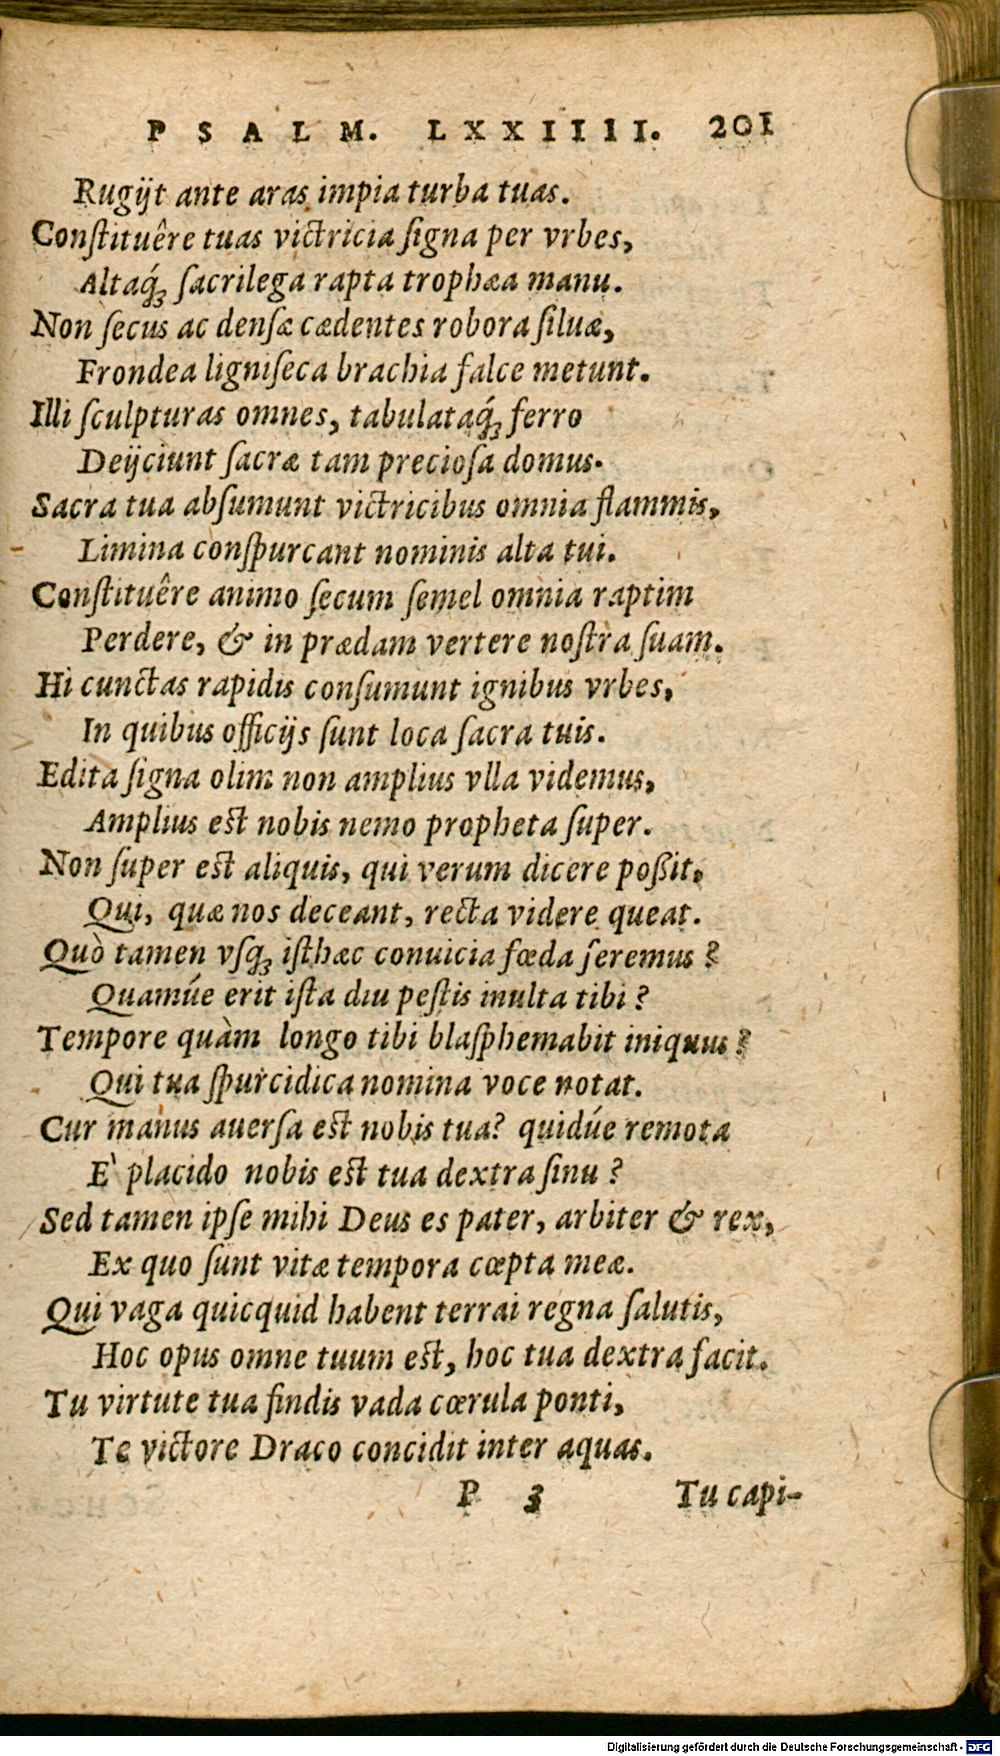 PSALM. LXXIIII. 201
Rugijt ante aras impia turba tuas.
Conſtituêre tuas victricia ſigna per vrbes,
Altaq́ꝫ ſacrilega rapta trophæa manu.
Non ſecus ac denſæ cædentes robora ſiluæ,
Frondea ligniſeca brachia falce metunt.
Illi ſculpturas omnes, tabulataq́ꝫ ferro
Deijciunt ſacræ tam precioſa domus.
Sacra tua abſumunt victricibus omnia flammis,
Limina conſpurcant nominis alta tui.
Conſtituêre animo ſecum ſemel omnia raptim
Perdere, & in prædam vertere noſtra ſuam.
Hi cunctas rapidis conſumunt ignibus vrbes,
In quibus officijs ſunt loca ſacra tuis.
Edita ſigna olim non amplius vlla videmus,
Amplius eſt nobis nemo propheta ſuper.
Non ſuper eſt aliquis, qui verum dicere poßit,
Qui, quæ nos deceant, recta videre queat.
Quò tamen vſqꝫ iſthæc conuicia fœda feremus?
Quamúe erit iſta diu peſtis inulta tibi?
Tempore quàm longo tibi blaſphemabit iniquus?
Qui tua ſpurcidica nomina voce notat.
Cur manus auerſa eſt nobis tua? quidúe remota
E` placido nobis eſt tua dextra ſinu?
Sed tamen ipſe mihi Deus es pater, arbiter & rex,
Ex quo ſunt vitæ tempora cœpta meæ.
Qui vaga quicquid habent terrai regna ſalutis,
Hoc opus omne tuum eſt, hoc tua dextra facit.
Tu virtute tua findis vada cœrula ponti,
Te victore Draco concidit inter aquas.
P 3 Tu capi-
Digitalisierung gefördert durch die Deutsche Forschungsgemeinschaft - DFG